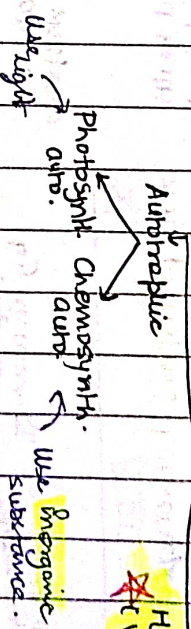 Autotrophic
Photosynth. Chemosynth.
auto. auto.
Use light
Use Inorganic
substance.
H